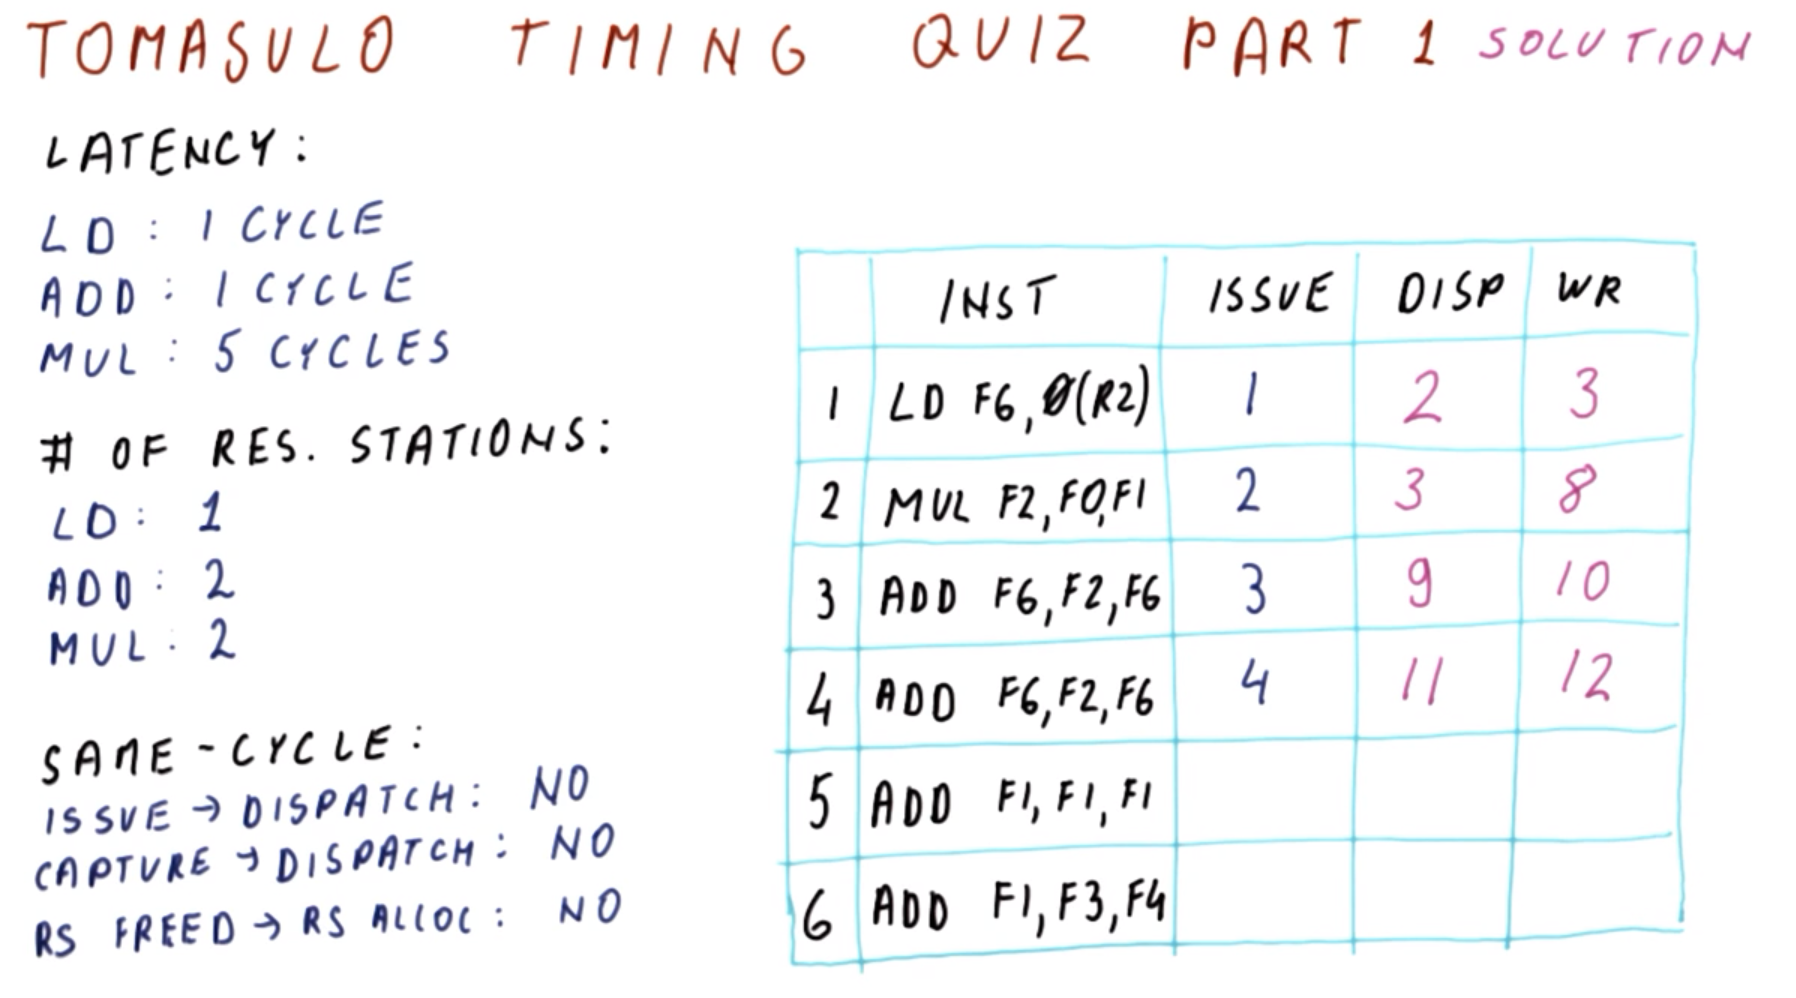 TOMASULO TIMING QUIZ PART 1 SOLUTION
LATENCY:
LD : 1 CYCLE
ADD : 1 CYCLE
MUL : 5 CYCLES
# OF RES. STATIONS:
LD : 1
ADD : 2
MUL : 2
SAME-CYCLE:
ISSUE → DISPATCH: NO
CAPTURE → DISPATCH: NO
RS FREED → RS ALLOC: NO
INST ISSUE DISP WR
1 LD F6, 0(R2) 1 2 3
2 MUL F2, F0, F1 2 3 8
3 ADD F6, F2, F6 3 9 10
4 ADD F6, F2, F6 4 11 12
5 ADD F1, F1, F1
6 ADD F1, F3, F4